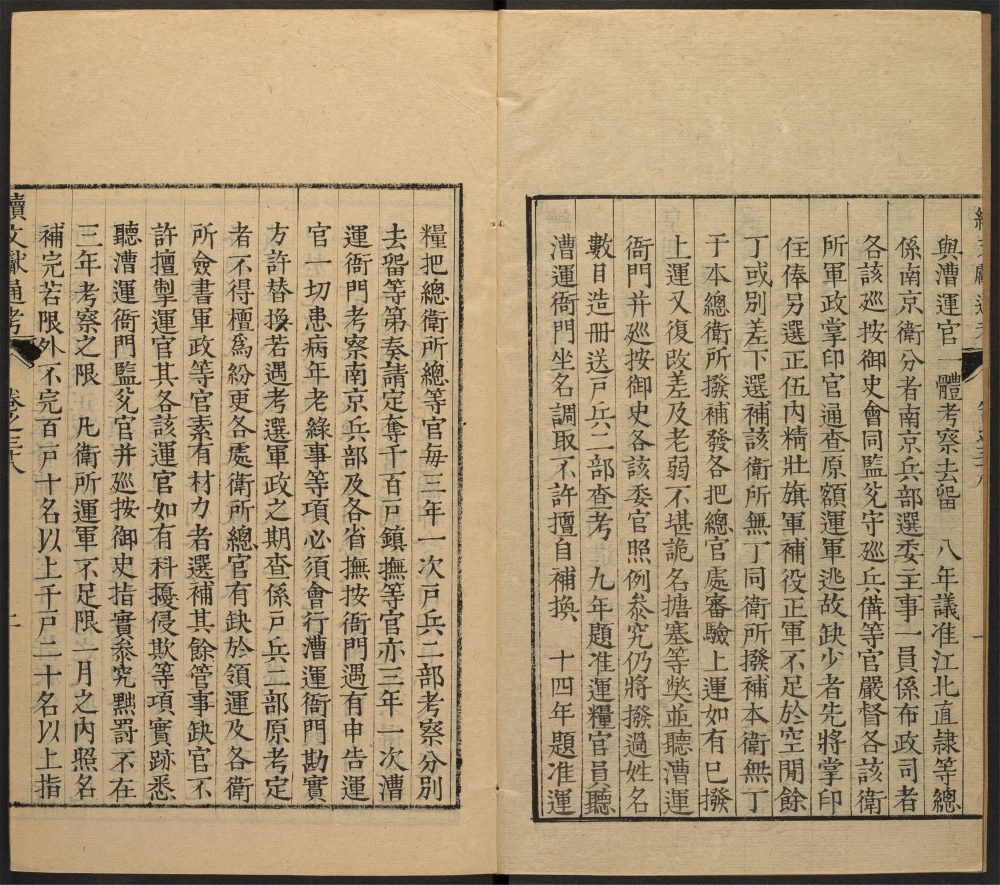 與漕運官一體考察去留　八年議准江北直隸等總
係南京衛分者南京兵部選委主事一員係布政司者
各該廵按御史會同監兊守廵兵備等官嚴督各該衛
所軍政掌印官通查原額運軍逃故缺少者先將掌印
住俸另選正伍內精壯旗軍補役正軍不足於空閒餘
丁或別差下選補該衛所無丁同衛所撥補本衛無丁
于本總衛所撥補發各把總官處審驗上運如有已撥
上運又復改差及老弱不堪詭名搪塞等獘並聽漕運
衙門并廵按御史各該委官照例叅究仍將撥過姓名
數目造冊送戸兵二部查考　九年題准運糧官員聽
漕運衙門坐名調取不許擅自補換　十四年題准運
糧把總衛所總等官每三年一次戸兵二部考察分別
去留等第奏請定奪千百戸鎮撫等官亦三年一次漕
運衙門考察南京兵部及各省撫按衙門遇有申告運
官一切患病年老緣事等項必須會行漕運衙門勘實
方許替換若遇考選軍政之期查係戸兵二部原考定
者不得擅爲紛更各處衛所總官有缺於領運及各衛
所僉書軍政等官素有材力者選補其餘管事缺官不
許擅掣運官其各該運官如有科擾侵欺等項實跡悉
聽漕運衙門監兊官并廵按御史指實叅究黜罰不在
三年考察之限　凡衛所運軍不足限一月之內照名
補完若限外不完百戸十名以上千戸二十名以上指
續文獻通考　卷之三十八　二